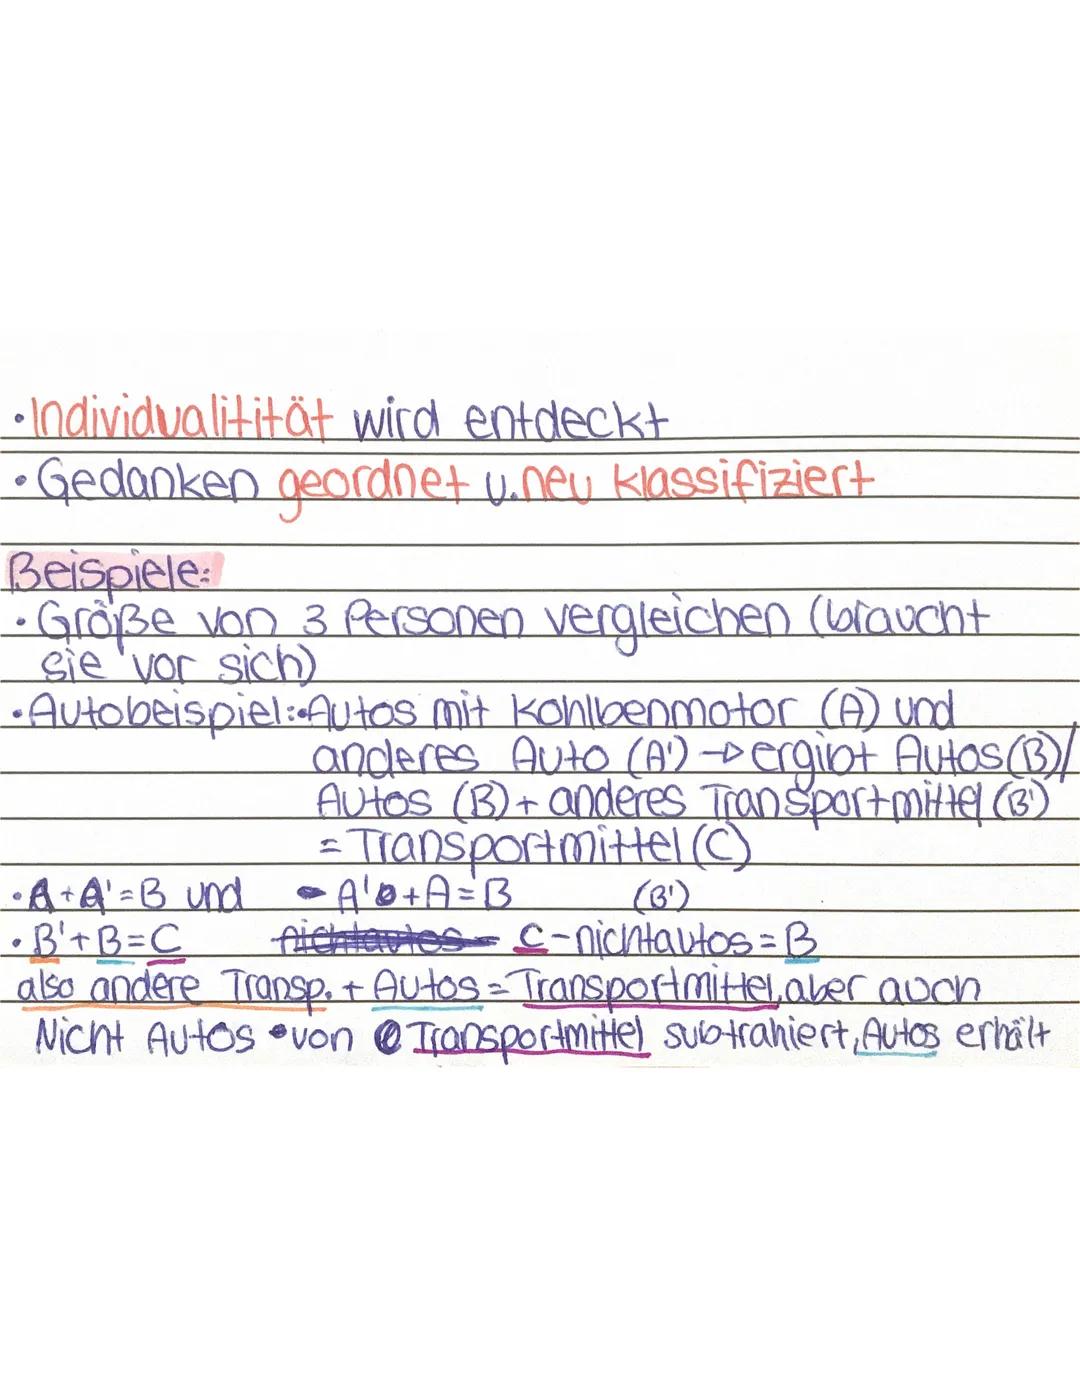 • Individualitität wird entdeckt
• Gedanken geordnet u. neu klassifiziert
Beispiele:
• Größe von 3 Personen vergleichen (braucht
sie vor sich)
• Autobeispiel: • Autos mit Kohlbenmotor (A) und
anderes Auto (A') → ergibt Autos (B)/
Autos (B) + anderes Transportmittel (B')
= Transportmittel (C)
• A + A' = B und - A' + A = B (B')
• B' + B = C nichtautos - C - nichtautos = B
also andere Transp. + Autos = Transportmittel, aber auch
Nicht Autos von Transportmittel subtrahiert, Autos erhält